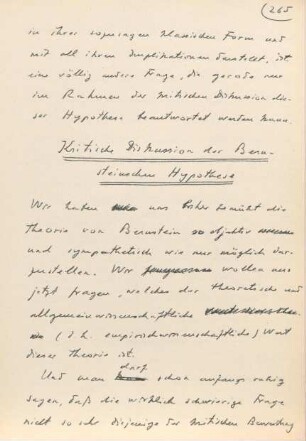 265
in ihrer sozusagen klassischen Form und
mit all ihren Implikationen darstellt, ist
eine völlig andere Frage, die gerade nur
im Rahmen der kritischen Diskussion die-
ser Hypothese beantwortet werden kann.
Kritische Diskussion der Bern-
steinschen Hypothese
Wir haben uns bisher bemüht die
Theorie von Bernstein so
und sympathetisch wie nur möglich dar-
zustellen. Wir wollen uns
jetzt fragen, welches der theoretische und
allgemeinwissenschaftliche
(d.h. empirischwissenschaftliche) Wert
dieser Theorie ist.
Und man darf schon anfangs ruhig
sagen, daß die wirklich schwierige Frage
nicht so sehr diejenige der kritischen Bewertung